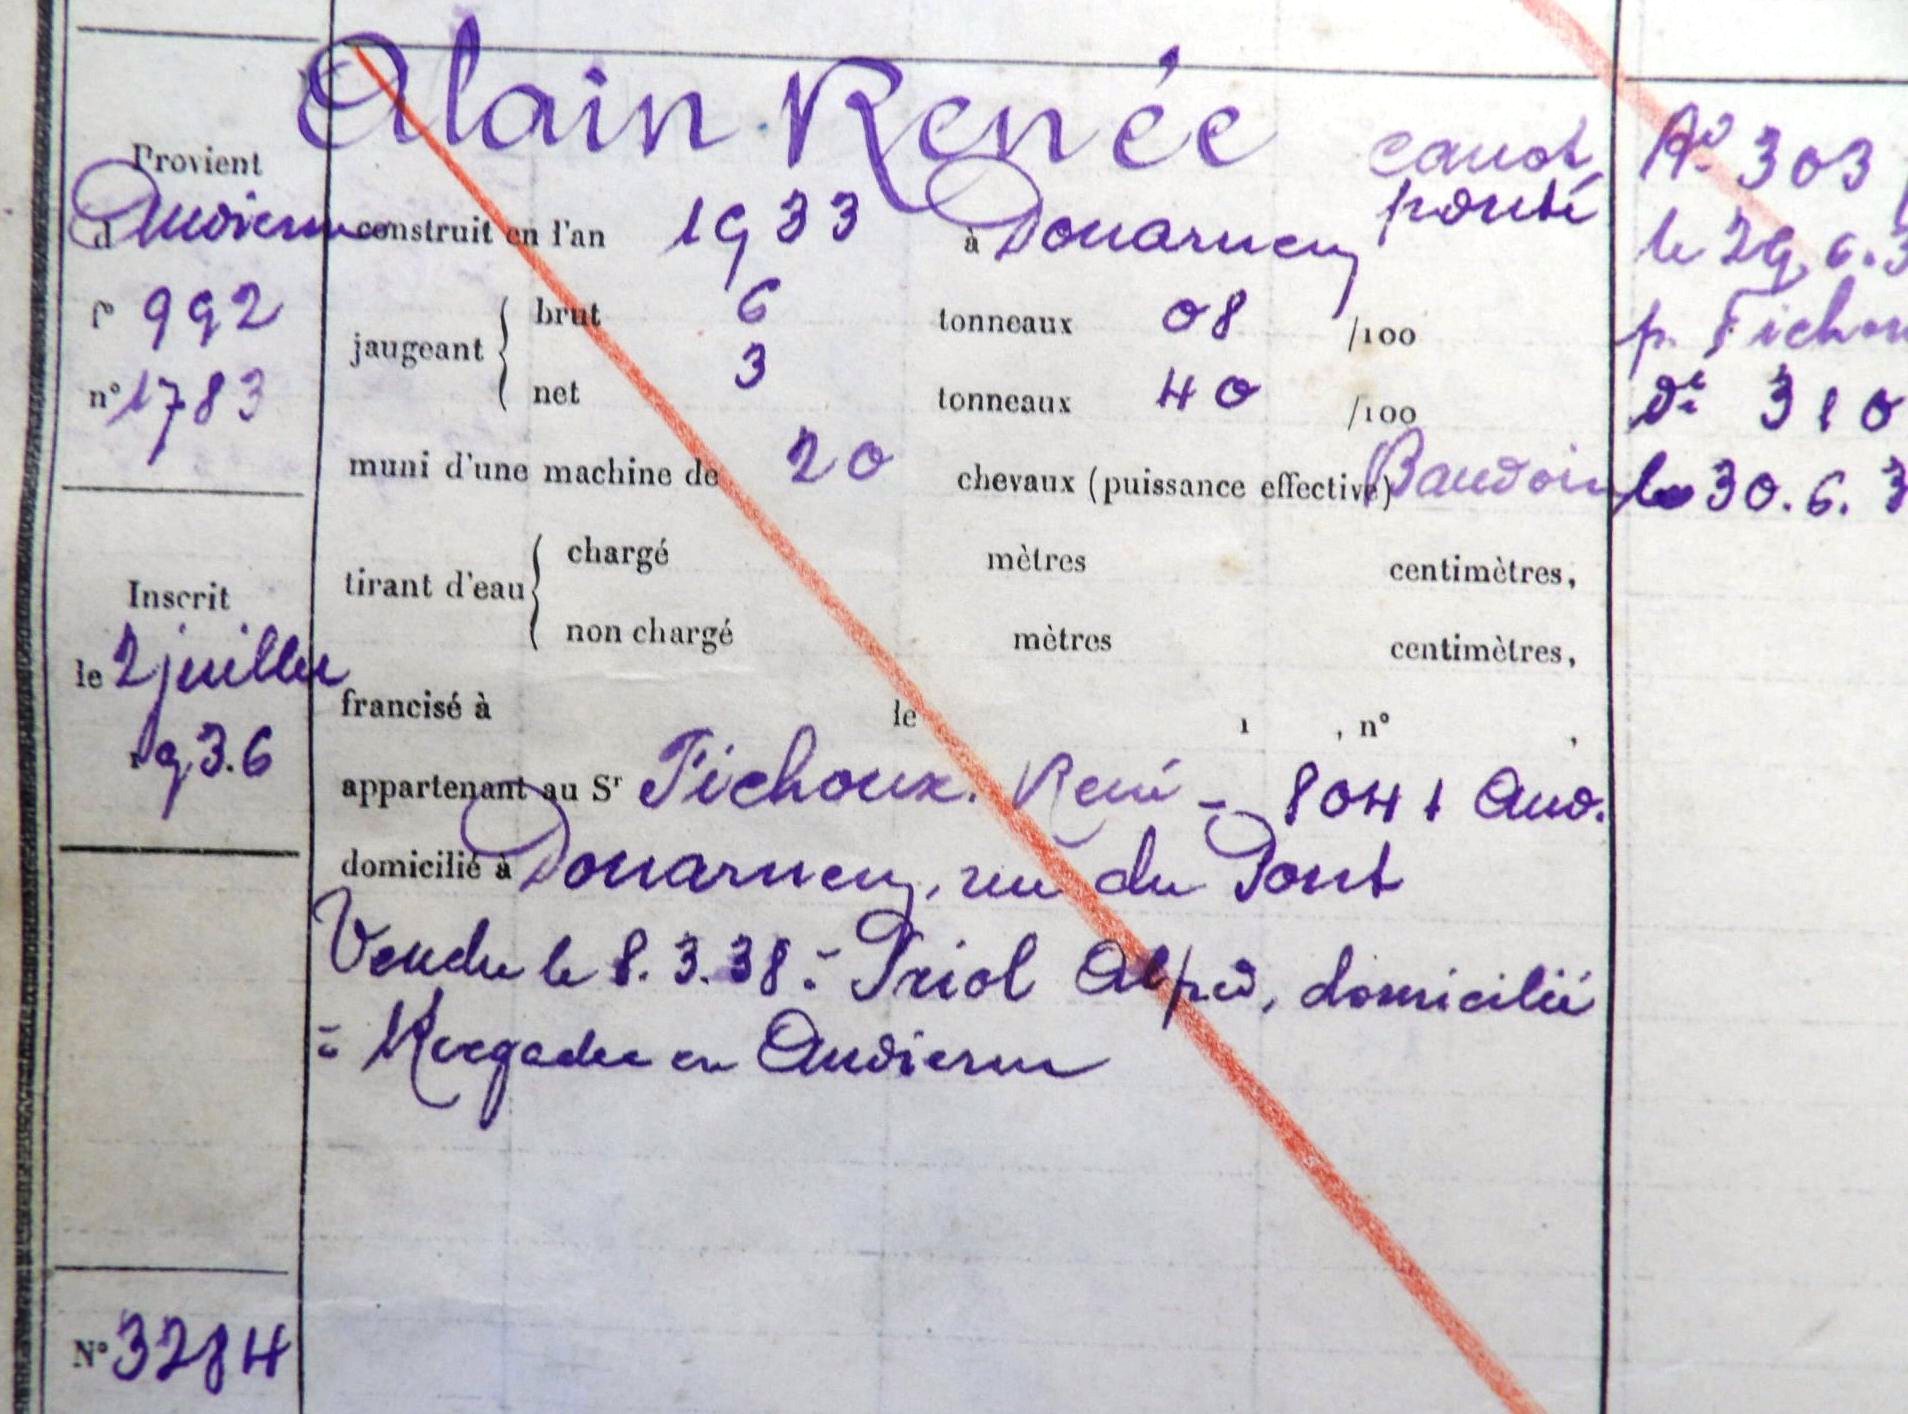 Alain Renée
canot
ponté
Provient
d'Audierne
f° 992
n° 1783
construit en l'an 1933 à Douarnenez
jaugeant
brut 6 tonneaux 08 /100
net 3 tonneaux 40 /100
muni d'une machine de 20 chevaux (puissance effective) Baudoin
tirant d'eau
chargé mètres centimètres,
non chargé mètres centimètres,
Inscrit
le 2 juillet
1936
francisé à le 1 , n° ,
appartenant au Sr Fichoux René - 8041 Aud.
domicilié à Douarnenez, rue du Port
Vendu le 8.3.38 à Priol Alfred, domicilié
à Kergadec en Audierne
N° 3284
A° 303
le 29.6.3
p. Fichou
dt 310
le 30.6.3